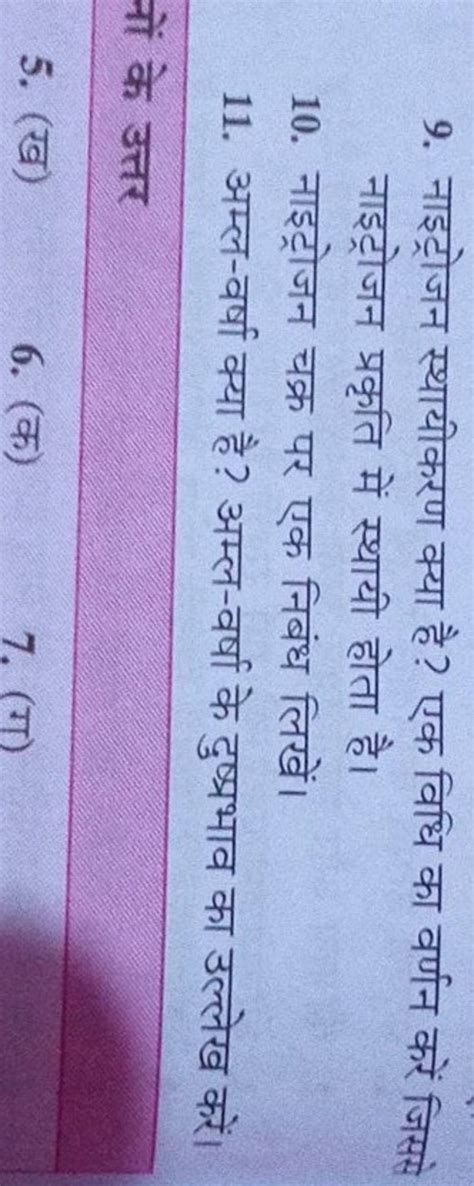 9. नाइट्रोजन स्थायीकरण क्या है? एक विधि का वर्णन करें जिससे
नाइट्रोजन प्रकृति में स्थायी होता है।
10. नाइट्रोजन चक्र पर एक निबंध लिखें।
11. अम्ल-वर्षा क्या है? अम्ल-वर्षा के दुष्प्रभाव का उल्लेख करें।
नों के उत्तर
5. (ख) 6. (क) 7. (ग)